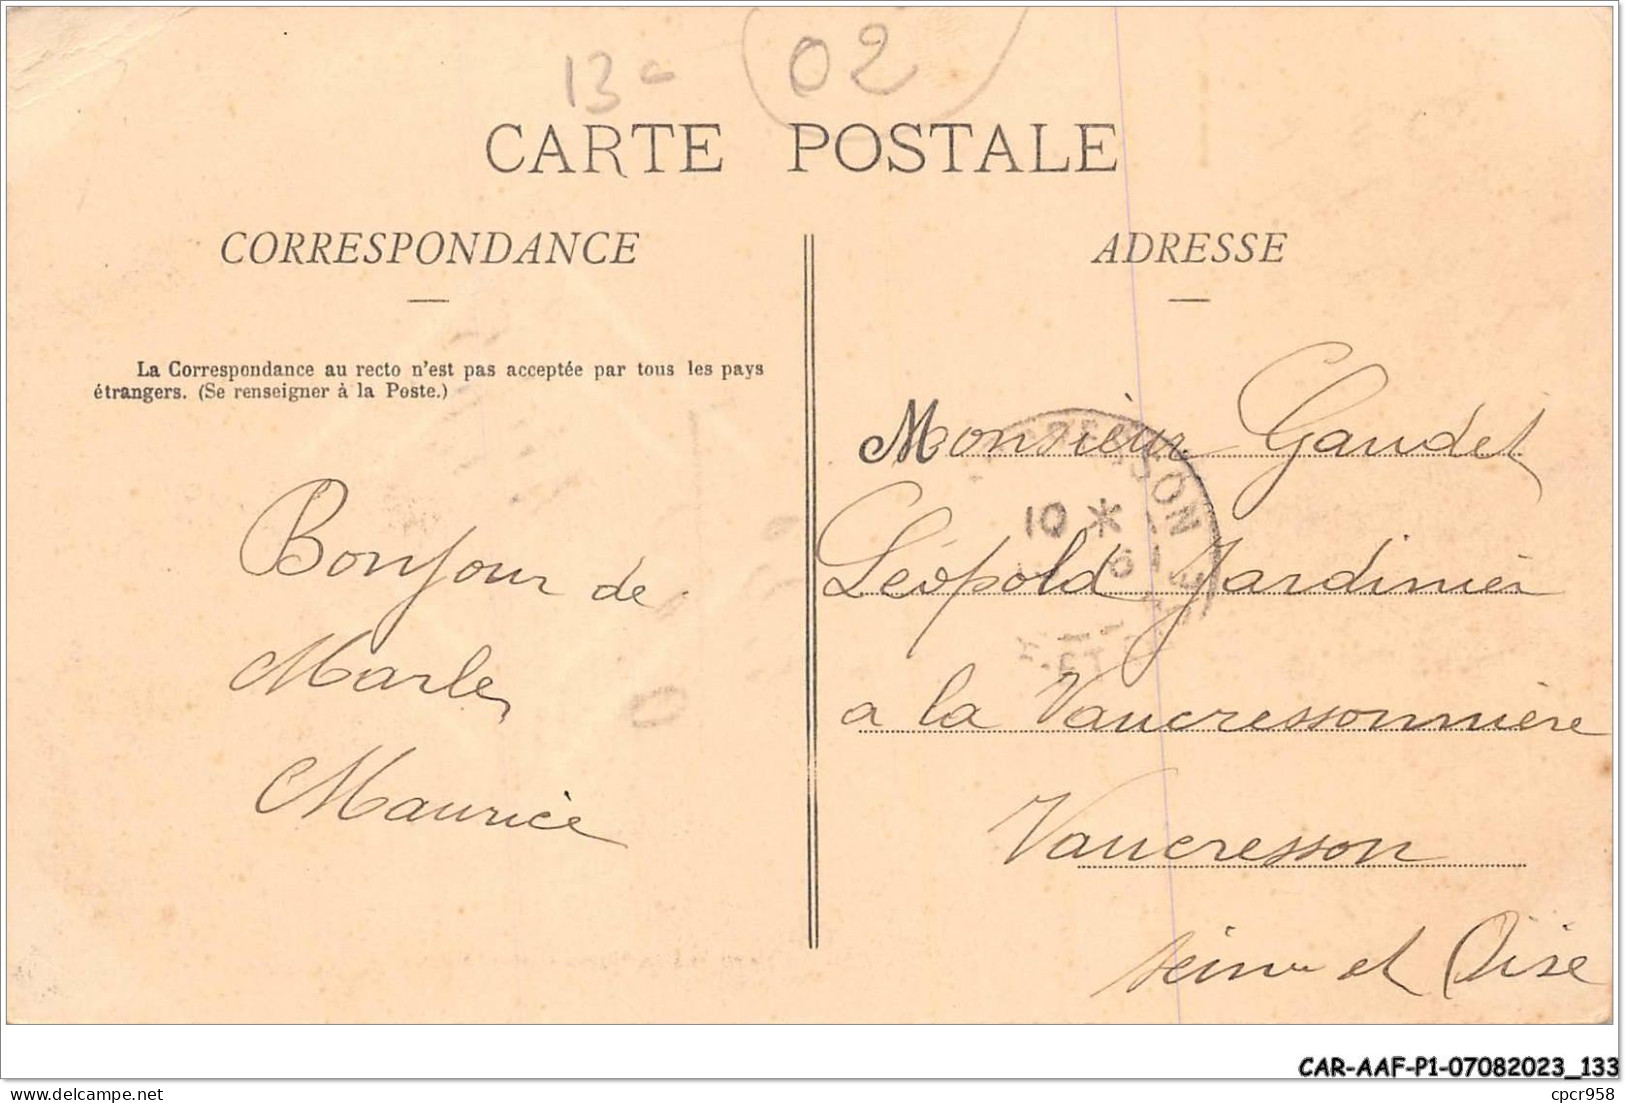 13 02
CARTE POSTALE
CORRESPONDANCE
ADRESSE
La Correspondance au recto n'est pas acceptée par tous les pays
étrangers. (Se renseigner à la Poste.)
Bonjour de
Marle
Maurice
Monsieur Gaudet
Léopold Jardinier
a la Vaucressonnière
Vaucresson
Seine et Oise
10 *
CAR-AAF-P1-07082023_133
delcampe.net
cpcr958